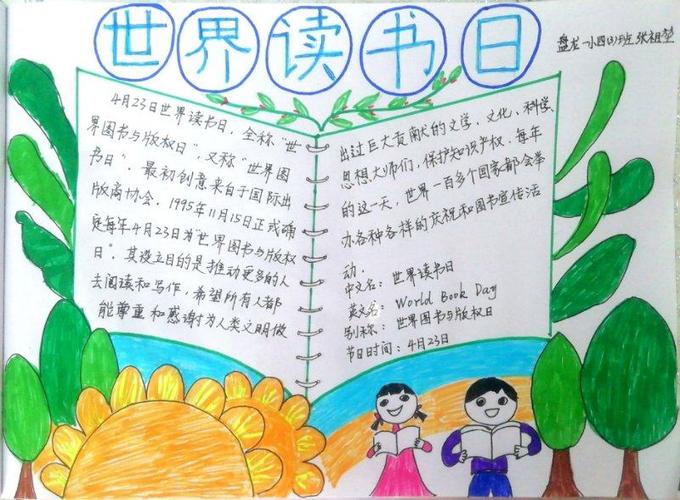 世界读书日
盘龙一小四(3)班 张祖
4月23日世界读书日，全称“世
界图书与版权日”，又称“世界图
书日”，最初创意来自于国际出
版商协会。1995年11月15日正式确
定每年4月23日为“世界图书与版权
日”。其设立目的是推动更多的人
去阅读和写作，希望所有人都
能尊重和感谢为人类文明做
出过巨大贡献的文学、文化、科学、
思想大师们，保护知识产权。每年
的这一天，世界一百多个国家都会举
办各种各样的庆祝和图书宣传活
动。
中文名：世界读书日
英文名：World Book Day
别称：世界图书与版权日
节日时间：4月23日